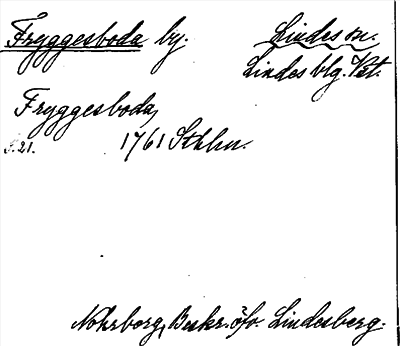 Fryggesboda by. Lindes sn.
Lindes blg. Vst.
Fryggesboda,
s. 21. 1761 Sthlm.
Nohrborg, Beskr. öfv. Lindesberg.